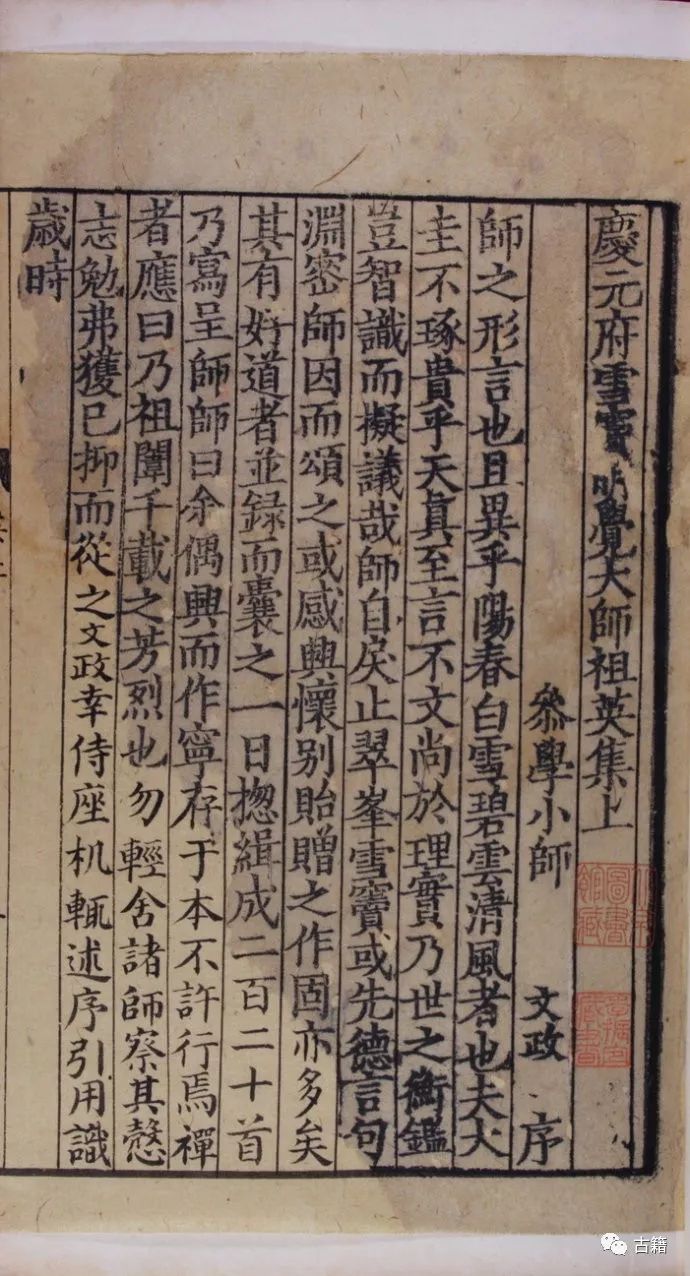 慶元府雪竇明覺大師祖英集上
叅學小師 文政 序
師之形言也且異乎陽春白雪碧雲清風者也夫大
圭不琢貴乎天真至言不文尚於理實乃世之衡鑑
豈智識而擬議哉師自戾止翠峯雪竇或先德言句
淵密師因而頌之或感興懷别貽贈之作固亦多矣
其有好道者並録而囊之一日揔緝成二百二十首
乃寫呈師師曰余偶興而作寧存于本不許行焉禪
者應曰乃祖闡千載之芳烈也勿輕舍諸師察其慤
志勉弗獲已抑而從之文政幸侍座机輒述序引用識
歲時
古籍